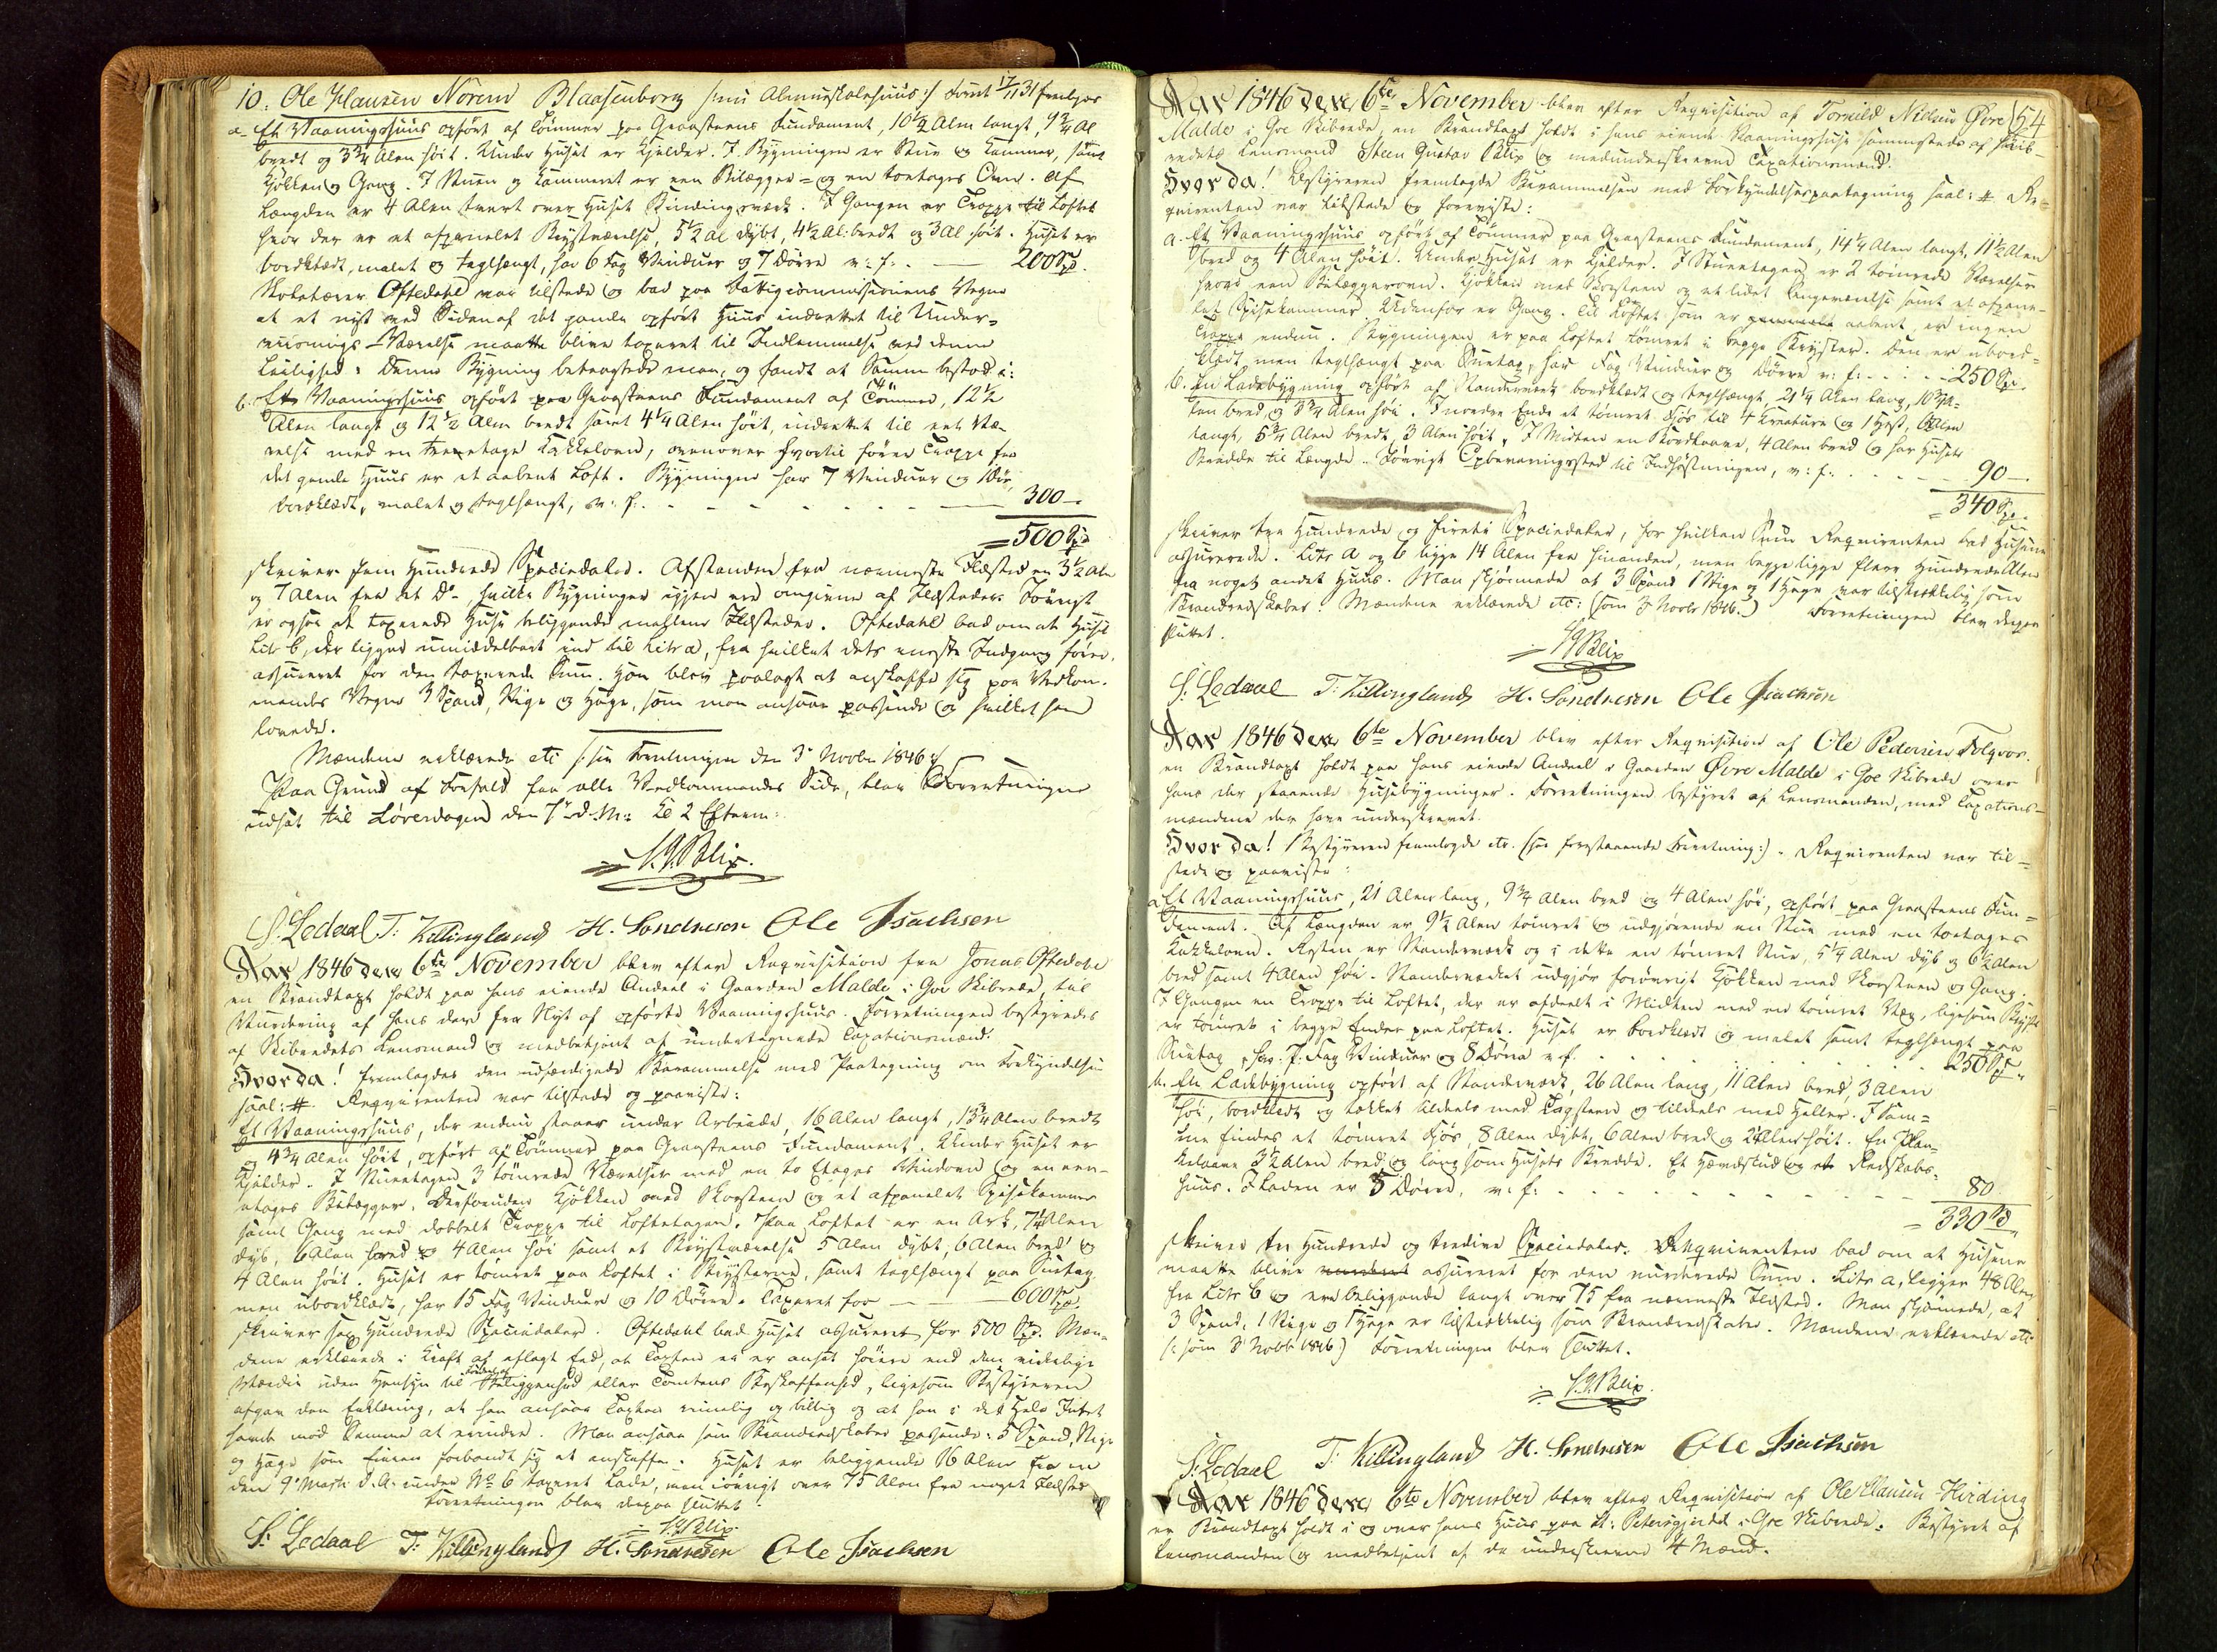 10. Ole Hansen Norem Blaasenborg
a. Et Vaaningshuus opført af Tømmer paa Graasteens Fundament, 10½ Alen langt, 9¾ Al
bredt og 3¾ Alen høit. Under Huset er Kjelder. I Bygningen er Stue og Kammer, samt
Kjøkken og Gang. I Stuen og Kammeret er een Bilægger= og en toetages Ovn. Af
Længden er 4 Alen tvert over Huset Bindingsværk. I Gangen er Trappe til Loftet
hvor der er et afpanelet Brystværelse, 5½ Al dybt, 4½ Al: bredt og 3 Al høit. Huset er
bordklædt, malet og teglhængt, har 6 Fag Vinduer og 7 Dørre v: f: . — 200 Spd.
Oftedahl var tilstede og bad paa Fattigcommissionens Vegne
at et nyt ved Siden af det gamle opført Huus indrettet til Under=
viisnings-Værelse maatte blive taxeret til Indlemmelse ved denne
Leilighed. Denne Bygning betragtede man, og fandt at Samme bestod i:
b. Et Vaaningshuus opført paa Graasteens Fundament af Tømmer, 12½
Alen langt og 12½ Alen bredt samt 4¼ Alen høit, indrettet til eet Væ-
relse med en treetages Kakkelovn, ovenover hvortil fører Trappe fra
det gamle Huus er et aabent Loft. Bygningen har 7 Vinduer og 1 Dør,
bordklædt, malet og teglhængt, v: f: . - - - - 300 —.
= 500 Spd
skriver fem Hundrede Speciedaler. Afstanden fra nærmeste Ildsted er 3½ Alen
og 7 Alen fra et Do, hvilke Bygninger igjen ere omgivne af Ildsteder. Forøvrigt
er ogsaa de taxerede Huse beliggende mellem Ildsteder. Oftedahl bad om at Huset
Litr b, der ligger umiddelbart ind til Litr a, fra hvilket dets eneste Indgang fører,
assureret for den taxerede Sum. Han blev paalagt at anskaffe sig paa Vedkom-
mendes Vegne 3 Spand, Stige og Hage, som man ansaae passende og hvilket han
lovede.
Mændene erklærede etc (see Forretningen den 3 Novbr 1846.)
Paa Grund af Forfald fra alle Vedkommendes Side, blev Forretningen
udsat til Løverdagen den 7de d. M: Kl 2 Efterm:
S.G. Blix.
S. Ledaal T: Killingland H. Sondresen Ole Isachsen
Aar 1846 den 6te November blev efter Requisition fra Jonas Oftedahl
en Brandtaxt holdt paa hans eiende Andeel i Gaarden Malde i Goe Skibrede, til
Vurdering af hans der fra Nyt af opførte Vaaningshuus. Forretningen bestyredes
af Skibredets Lensmand og medbetjent af undertegnede Taxationsmænd.
Hvor da! fremlagdes den udfærdigede Berammelse med Paategning om Forkyndelsen
saal: #. Requirenten var tilstede og paaviste:
Et Vaaningshuus, der endnu staaer under Arbeide, 16 Alen langt, 13¾ Alen bredt
og 4¾ Alen høit, opført af Tømmer paa Graasteens Fundament. Under Huset er
Kjelder. I Stueetagen 3 tømrede Værelser med en to Etages Vindovn og en een-
etages Bilægger. Desforuden Kjøkken med Skorsteen og et afpanelet Spisekammer
samt Gang med dobbelt Trappe til Loftetagen. Paa Loftet er en Ark, 7¼ Alen
dyb, 6 Alen bred og 4 Alen høi samt et Brystværelse 5 Alen dybt, 6 Alen bred og
4 Alen høit. Huset er tømret paa Loftet i Brysterne, samt teglhængt paa Sutag
men ubordklædt, har 15 Fag Vinduer og 10 Dørre. Taxeret for — 600 Spd.
skriver sex Hundrede Speciedaler. Oftedahl bad Huset assureret for 500 Spd. Mæn-
dene erklærede i Kraft af aflagt Eed, at Taxten ei er ansat høiere end den virkelige
Værdie uden Hensyn til Beliggenhed eller Tomtens Beskaffenhed, ligesom Bestyreren
afgav den Erklæring, at han ansaae Taxten rimelig og billig og at han i det Hele Intet
havde mod Samme at erindre. Man ansaae som Brandredskaber passende: 5 Spand, Stige
og Hage som Eieren forbandt sig at anskaffe. Huset er beliggende 16 Alen fra en
den 9de Marts d. A. under No 6 taxeret Lade, men iøvrigt over 75 Alen fra noget Ildsted
Forretningen blev derpaa sluttet.
S.G. Blix.
S. Ledaal T: Killingland H. Sondresen Ole Isachsen
54
Aar 1846 den 6te November blev efter Requisition af Torkild Nielsen Øvre
Malde i Goe Skibrede, en Brandtaxt holdt i hans eiende Vaaningshuse sammesteds af Skib-
redets Lensmand Steen Gustav Blix og medunderskrevne Taxationsmænd.
Hvor da! Bestyreren fremlagde Berammelsen med Forkyndelsespaategning saal: #. Re=
quirenten var tilstede og foreviste:
a. Et Vaaningshuus opført af Tømmer paa Graasteens Fundament, 14¼ Alen langt, 11½ Alen
bred og 4 Alen høit. Under Huset er Kjelder. I Stueetagen er 2 tømrede Værelser
hvoraf een Bilæggerovn. Kjøkken med Skorsteen og et lidet Sengeværelse samt et afpane-
let Spisekammer. Udenfor er Gang. Til Loftet som er aabent, er ingen
Trappe endnu. Bygningen er paa Loftet tømret i begge Bryster. Den er ubord=
klædt, men teglhængt paa Sutag, har Fag Vinduer og Dørre v: f: . - - - 250 Spd.
b. En Ladebygning opført af Standerværk bordklædt og teglhængt, 21¼ Alen lang, 10¾ A-
len bred, og 3¾ Alen høi. I nordre Ende et tømret Fjøs til 4 Kreature og 1 Hest, 6 Alen
langt, 5¾ Alen bredt, 3 Alen høit. I Midten en Kornlaave, 4 Alen bred og har Husets
Bredde til Længde. Forøvrigt Opbevaringssted til Indhøstningen, v: f: . - - - 90 —.
= 340 Spd.
skriver tre Hundrede og fireti Speciedaler, for hvilken Sum Requirenten bad Husene
assurerede. Litr a og b ligge 14 Alen fra hinanden, men begge ligge flere Hundrede Alen
fra noget andet Huus. Man skjønnede at 3 Spand 1 Stige og 1 Hage var tilstrækkelig som
Brandredskaber. Mændene erklærede etc: (som 3 Novbr 1846.) Forretningen blev derpaa
sluttet.
S.G. Blix
S. Ledaal T: Killingland H. Sondresen Ole Isachsen
Aar 1846 den 6te November blev efter Requisition af Ole Pedersen Folgvor.
en Brandtaxt holdt paa hans eiende Andeel i Gaarden Øvre Malde i Goe Skibrede over
hans der staaende Huusbygninger. Forretningen bestyret af Lensmanden, med Taxations-
mændene der have underskrevet.
Hvor da! Bestyreren fremlagde etc. (see forestaaende Forretning:). Requirenten var til=
stede og paaviste:
a. Et Vaaningshuus, 21 Alen lang, 9¾ Alen bred og 4 Alen høi, opført paa Graasteens Fun=
dament. Af Længden er 9½ Alen tømret og udgjørende en Stue med en toetages
Kakkelovn. Resten er Standerværk og i dette en tømret Stue, 5¼ Alen dyb og 6½ Alen
bred samt 4 Alen høi. Standerværket udgjør forøvrigt Kjøkken med Skorsteen og Gang.
I Gangen en Trappe til Loftet, der er afdeelt i Midten med en tømret Væg, ligesom Bryst
er tømret i begge Ender paa Loftet. Huset er bordklædt og malet samt teglhængt paa
Sutag, har 7. Fag Vinduer og 8 Dørre v: f. - - - 250 Spd.
b. En Ladebygning opført af Standerværk, 26 Alen lang, 11 Alen bred, 3 Alen
høi, bordklædt og tækket tildeels med Tagsteen og tildeels med Heller. I Sam=
me findes et tømret Fjøs, 8 Alen dybt, 6 Alen bred og 2¾ Alen høit. En
3½ Alen bred og lang som Husets Bredde. Et og et Redskabs-
huus. I Laden er 5 Dørre, v: f: - - - 80
= 330 Spd
skriver tre Hundrede og tredive Speciedaler. Requirenten bad om at Husene
maatte blive assureret for den vurderede Sum. Litr a, ligger 48 Alen
fra Litr b og ere beliggende langt over 75 fra nærmeste Ildsted. Man skjønnede, at
3 Spand, 1 Stige og 1 Hage er tilstrækkelig som Brandredskaber. Mændene erklærede etc
(: som 3 Novbr 1846:) Forretningen blev sluttet.
S.G. Blix.
S. Ledaal T: Killingland H. Sondresen Ole Isachsen
Aar 1846 den 6te November blev efter Requisition af Ole Clausen Hirding
en Brandtaxt holdt i og over hans Huus paa St: Petersgjerdet i Goe Skibrede. Bestyret af
Lensmanden og medbetjent af de underskrevne 4 Mænd.